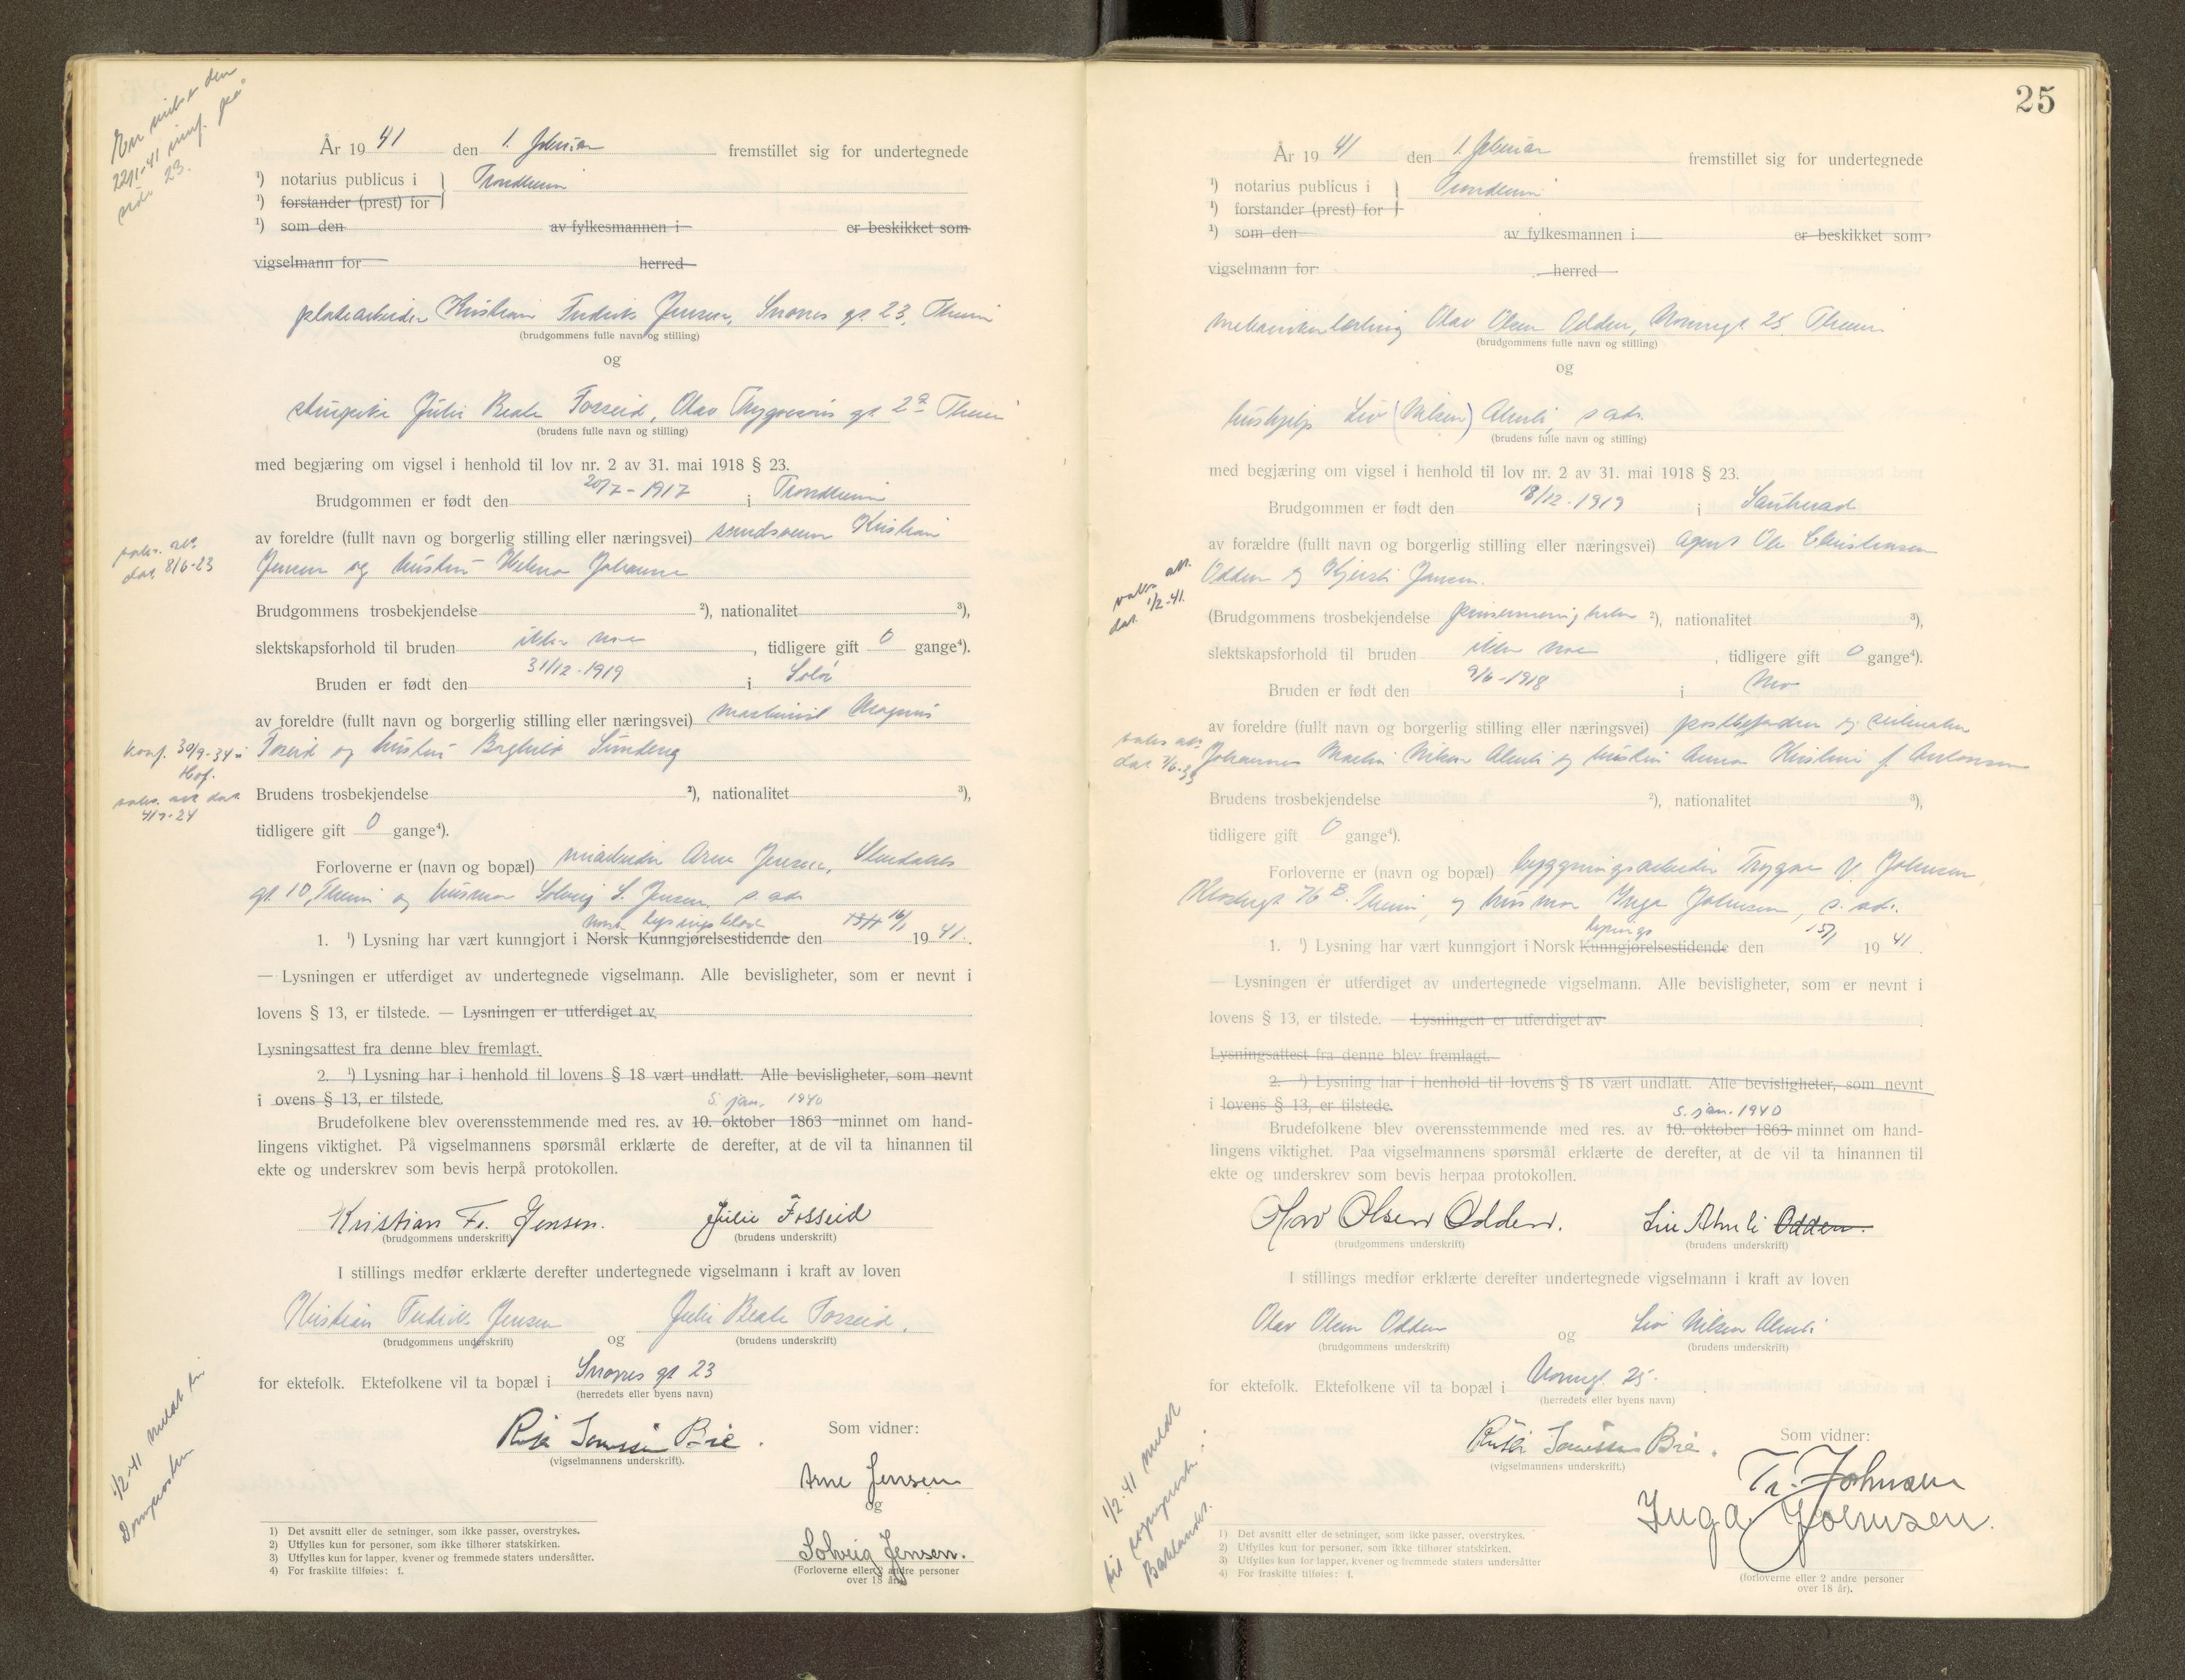 År 19 41 den 1. februar fremstillet sig for undertegnede
¹) notarius publicus i } Trondheim
¹) forstander (prest) for
¹) som den av fylkesmannen i er beskikket som
vigselmann for herred
platearbeider Kristian Fredrik Jensen, Snorres gt. 23, Theim
(brudgommens fulle navn og stilling)
og
Julie Beate Fosseid, Olav Trygvesøns gt. Theim
(brudens fulle navn og stilling)
med begjæring om vigsel i henhold til lov nr. 2 av 31. mai 1918 § 23.
Brudgommen er født den 20/7 - 1917 i Trondheim
av foreldre (fullt navn og borgerlig stilling eller næringsvei) Kristian
vaks. att. dat. 8/6-23
Jensen og hustru Johanne
Brudgommens trosbekjendelse ²), nationalitet ³),
slektskapsforhold til bruden ikke noe, tidligere gift 0 gange⁴).
Bruden er født den 31/12 - 1919 i Solør
av foreldre (fullt navn og borgerlig stilling eller næringsvei) maskinist Magnus
konf. 30/9-34 i Hof.
Fosseid og hustru Borghild
vaks. att dat.
Brudens trosbekjendelse ²), nationalitet ³),
tidligere gift 0 gange⁴).
Forloverne er (navn og bopæl) Arne Jensen,
gt. 10, Theim og husmor Solveig S. Jensen s. adr.
Norsk Lysingsblad 16/1
1. ¹) Lysning har vært kunngjort i Norsk Kunngjørelsestidende den 19 41.
— Lysningen er utferdiget av undertegnede vigselmann. Alle bevisligheter, som er nevnt i
lovens § 13, er tilstede. — Lysningen er utferdiget av
Lysningsattest fra denne blev fremlagt.
2. ¹) Lysning har i henhold til lovens § 18 vært undlatt. Alle bevisligheter, som nevnt
i ovens § 13, er tilstede.
5. jan. 1940
Brudefolkene blev overensstemmende med res. av 10. oktober 1863 minnet om hand-
lingens viktighet. På vigselmannens spørsmål erklærte de derefter, at de vil ta hinannen til
ekte og underskrev som bevis herpå protokollen.
Kristian Fr. Jensen. Julie Fosseid
(brudgommens underskrift) (brudens underskrift)
I stillings medfør erklærte derefter undertegnede vigselmann i kraft av loven
Kristian Fredrik Jensen og Julie Beate Fosseid.
(brudgommens underskrift) (brudens underskrift)
for ektefolk. Ektefolkene vil ta bopæl i Snorres gt 23
(herredets eller byens navn)
1/2-41 meldt til
Domprosten
Bie. Som vidner:
(vigselmannens underskrift).
Arne Jensen
og
Solveig Jensen.
(Forloverne eller 2 andre personer
over 18 år).
1) Det avsnitt eller de setninger, som ikke passer, overstrykes.
2) Utfylles kun for personer, som ikke tilhører statskirken.
3) Utfylles kun for lapper, kvener og fremmede staters undersåtter.
4) For fraskilte tilføies: f.
25
År 19 41 den 1. februar fremstillet sig for undertegnede
¹) notarius publicus i } Trondheim
¹) forstander (prest) for
¹) som den av fylkesmannen i er beskikket som
vigselmann for herred
mekanikerlærling Olav Olsen Odden, 25, Theim
(brudgommens fulle navn og stilling)
og
hushjelp Liv (Nilsen) Almli, s adr.
(brudens fulle navn og stilling)
med begjæring om vigsel i henhold til lov nr. 2 av 31. mai 1918 § 23.
Brudgommen er født den 18/12 - 1919 i Sauherad
av forældre (fullt navn og borgerlig stilling eller næringsvei) agent Ole Christensen
vaks. att. dat. 1/2-41.
Odden og Kjersti Jansen.
(Brudgommens trosbekjendelse ²), nationalitet ³),
slektskapsforhold til bruden ikke noe, tidligere gift 0 gange⁴).
Bruden er født den 9/6 - 1918 i Mo
av foreldre (fullt navn og borgerlig stilling eller næringsvei) og
vaks att.
Johannes Martin Nilsen Almli og hustru Anna Kristine f. Antonsen
Brudens trosbekjendelse ²), nationalitet ³),
tidligere gift 0 gange⁴).
Forloverne er (navn og bopæl) bygningsarbeider Trygve Johnsen,
Theim, og husmor Inga Johnsen, s. adr.
lysings
1. ¹) Lysning har vært kunngjort i Norsk Kunngjørelsestidende den 15/1 19 41.
— Lysningen er utferdiget av undertegnede vigselmann. Alle bevisligheter, som er nevnt i
lovens § 13, er tilstede. — Lysningen er utferdiget av
Lysningsattest fra denne blev fremlagt.
2. ¹) Lysning har i henhold til lovens § 18 vært undlatt. Alle bevisligheter, som nevnt
i lovens § 13, er tilstede.
5. jan. 1940
Brudefolkene blev overensstemmende med res. av 10. oktober 1863 minnet om hand-
lingens viktighet. Paa vigselmannens spørsmål erklærte de derefter, at de vil ta hinannen til
ekte og underskrev som bevis herpaa protokollen.
Olav Olsen Odden. Liv Almli Odden.
(brudgommens underskrift) (brudens underskrift)
I stillings medfør erklærte derefter undertegnede vigselmann i kraft av loven
Olav Olsen Odden og Liv Nilsen Almli
(brudgommens underskrift) (brudens underskrift)
for ektefolk. Ektefolkene vil ta bopæl i 25.
(herredets eller byens navn)
1/2-41 meldt
til sogneprest i
Baklandet.
Bie. Som vidner:
(vigselmannens underskrift.)
Tr. Johnsen
Inga Johnsen.
(forloverne eller 2 andre personer
over 18 år).
1) Det avsnitt eller de setninger, som ikke passer, overstrykes.
2) Utfylles kun for personer, som ikke tilhører statskirken.
3) Utfylles kun for lapper, kvener og fremmede staters undersåtter
4) For fraskilte tilføies: f.